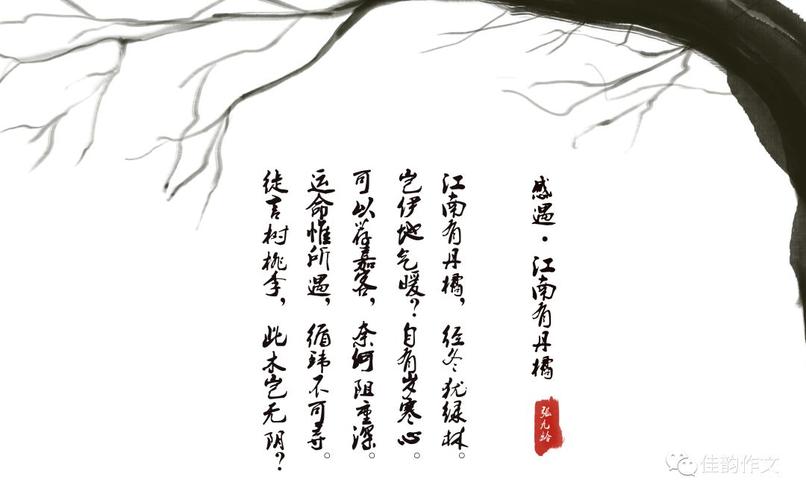 感遇·江南有丹橘
张九龄
江南有丹橘，经冬犹绿林。
岂伊地气暖？自有岁寒心。
可以荐嘉客，奈何阻重深。
运命惟所遇，循环不可寻。
徒言树桃李，此木岂无阴？
佳韵作文